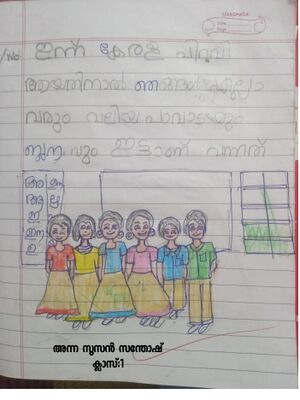 classmate
Date
Page
ഇന്ന് കേരള പിറവി
ആയതിനാൽ ഞങ്ങൾ എല്ലാ
വരും വലിയ പാവാടയും
ബ്ലൗസും ഇട്ടാണ് വന്നത്
അ
ആ
ഇ
ഈ
ഉ
അന്ന സൂസൻ സന്തോഷ്
ക്ലാസ്:1